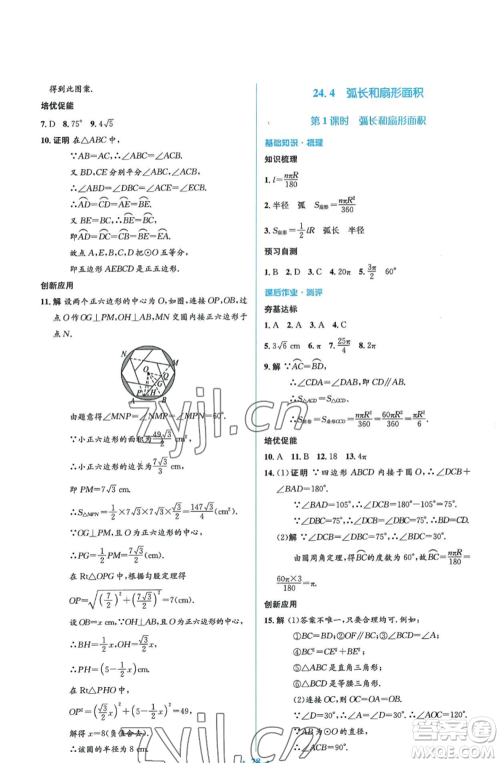 得到此图案.
培优促能
7. D 8. 75° 9. 4√3
10. 证明 在△ABC中,
∵AB=AC,∴∠ABC=∠ACB.
又∵BD,CE分别平分∠ABC,∠ACB,
∴∠ABD=∠CBD=∠BCE=∠ACE.
即
又∵∠BAC=∠BCE,
∴∠BAC=∠ABD=∠CBD=∠BCE=∠ACE.
∴BC=AD=CD=BE=AE.
故点A,E,B,C,D把⊙O五等分.
即五边形AEBCD是正五边形.
创新应用
11. 解 设两个正六边形的中心为O,连接OP,OB,过
点O作OG⊥PM,OH⊥AB
由题意得∠MNP=∠NMP=∠MPN=60°.
∵小正六边形的面积为 49√3/2 cm²,
∴小正六边形的边长为 7√3/3 cm.
即PM=7√3 cm.
∴S△MPN=1/2×7√3×7√3×√3/2=147√3/4(cm²).
∵OG⊥PM,且O为正六边形的中心,
∴PG=1/2PM=7√3/2 cm.
在Rt△OPG中,根据勾股定理得
OP=√((7/2)²+(7√3/2)²)=7(cm).
设OB=x cm,∵OH⊥AB,且O为正六边形的中心,
∴BH=1/2x cm,OH=√3/2x cm.
∴PH=(5-1/2x)cm.
在Rt△PHO中,
OP²=(√3/2x)²+(5-1/2x)²=49,
解得x=8(负值舍去).
∴该圆的半径为8 cm.
24.4 弧长和扇形面积
第1课时 弧长和扇形面积
基础知识·梳理
知识梳理
1. l=nπR/180
2. 半径 弧 S扇形=nπR²/360
3. S扇形=1/2lR 弧长 半径
预习自测
1. B 2. D 3. C 4. 2π 60°
课后作业·测评
夯基达标
1. A 2. A 3. C 4. 20π
5. 3√6 cm 6. 2√3π/3 7. 25π/4 8. 2π/3
9. 解 ∵AC=BD,∴AC∥CD.
∴S△ACD=S△OCD.
∴S阴影=S扇形OCD=nπR²/360=60πR²/360=πR²/6.
培优促能
10. A 11. B 12. 18 13. 2π/3
14. (1)证明 ∵四边形ABCD内接于圆O,∴∠DCB+
∠BAD=180°.
∵∠BAD=105°,∴∠DCB=180°-105°=75°.
∵∠DBC=75°,∴∠DCB=∠DBC=75°.
∴BD=CD.
(2)解 ∵∠DCB=∠DBC=75°,∴∠BDC=30°.
由圆周角定理,得BC的度数为60°,故BC=nπR/180=
60π×3/180=π.
创新应用
15. 解 (1)答案不唯一,只要合理均可.例如:
①BC=BD;②OF∥BC;③∠BCD=∠A;
④BC²=CE²+BE²;
⑤△ABC是直角三角形;
⑥△BCD是等腰三角形.
(2)连接OC,则OC=OA=OB.
∵∠D=30°,∴∠A=∠D=30°.
∴∠AOC=120°.